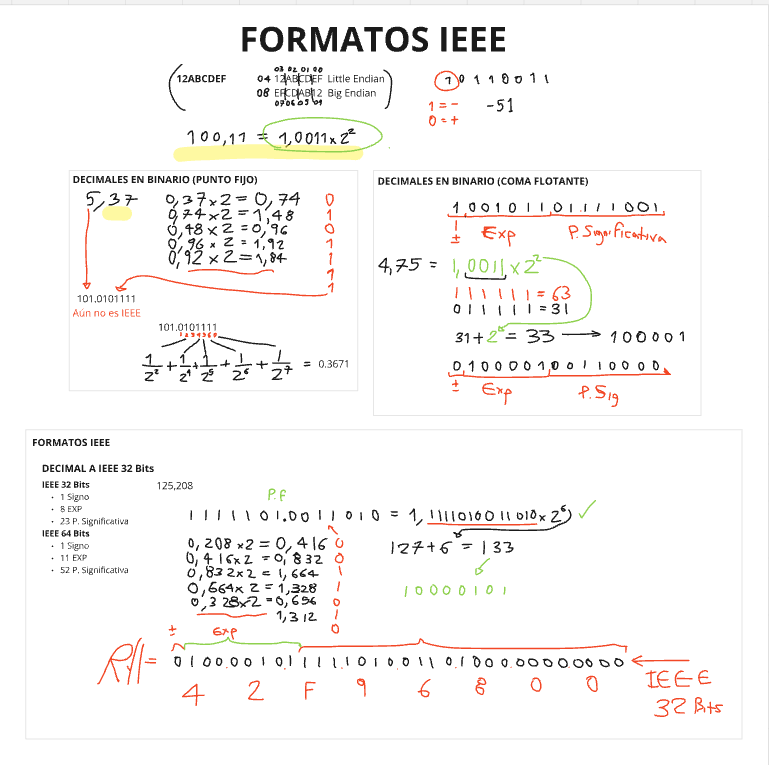 FORMATOS IEEE
03 02 01 00
12ABCDEF 04 12ABCDEF Little Endian
08 EFCDAB12 Big Endian
07060504
10110011
1 = -
0 = +
-51
100,11 = 1,0011 x 2²
DECIMALES EN BINARIO (PUNTO FIJO)
5,37
0,37 x 2 = 0,74 0
0,74 x 2 = 1,48 1
0,48 x 2 = 0,96 0
0,96 x 2 = 1,92 1
0,92 x 2 = 1,84 1
1
1
101.0101111
Aún no es IEEE
101.0101111
1/2² + 1/2⁴ + 1/2⁵ + 1/2⁶ + 1/2⁷ = 0.3671
DECIMALES EN BINARIO (COMA FLOTANTE)
1,001011,01,1,1,1,001
± Exp P. Significativa
4,75 = 1,0011 x 2²
111111 = 63
011111 = 31
31 + 2 = 33 → 100001
0,100001,00110000
± Exp P.Sig
FORMATOS IEEE
DECIMAL A IEEE 32 Bits
IEEE 32 Bits
• 1 Signo
• 8 EXP
• 23 P. Significativa
IEEE 64 Bits
• 1 Signo
• 11 EXP
• 52 P. Significativa
125,208
P.f
1111101.0011010 = 1,1111010011010 x 2⁶ ✓
0,208 x 2 = 0,416 0
0,416 x 2 = 0,832 0
0,832 x 2 = 1,664 1
0,664 x 2 = 1,328 1
0,328 x 2 = 0,656 0
1,312 1
0
127 + 6 = 133
10000101
± Exp
R// = 0100.0010.1111.1010.0110.1000.0000.0000
4 2 F 9 6 8 0 0
IEEE
32 Bits